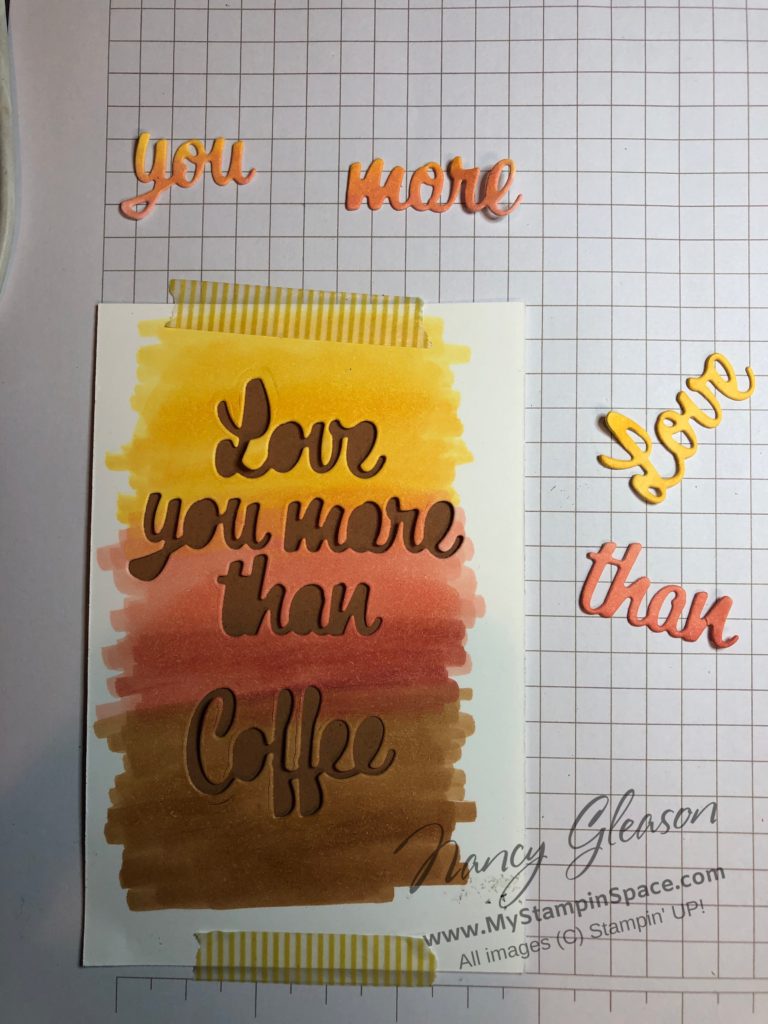 you more
Love
you more
than
Coffee
Love
than
Nancy Gleason
www.MyStampinSpace.com
All images (C) Stampin' UP!